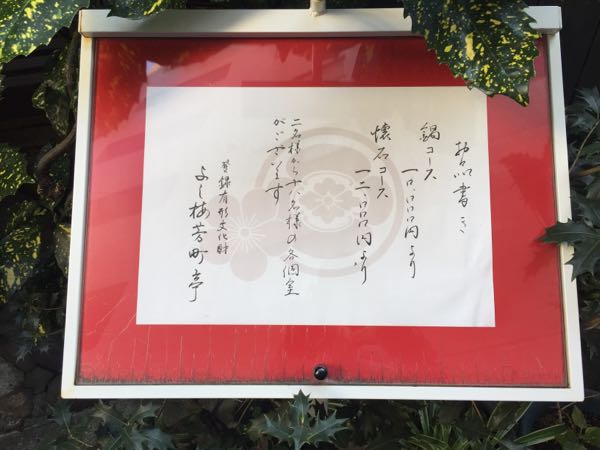 お品書き
鍋コース
一〇、〇〇〇円より
懐石コース
一二、〇〇〇円より
二名様から十六名様の各個室
がございます
登録有形文化財
よし梅芳町亭